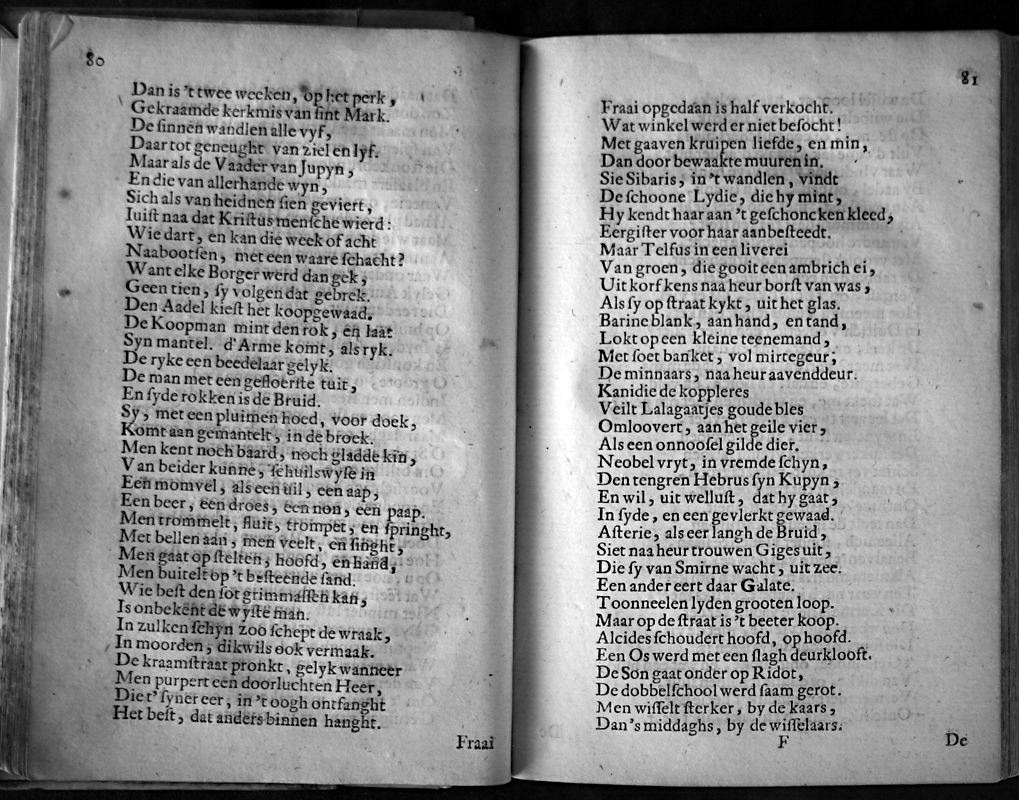 80
Dan is 't twee weeken, op het perk,
Gekraamde kerkmis van sint Mark.
De sinnen wandlen alle vyf,
Daar tot geneught van ziel en lyf.
Maar als de Vaader van Jupyn,
En die van allerhande wyn,
Sich als van heidnen sien geviert,
Iuist naa dat Kristus mensche wierd:
Wie dart, en kan die week of acht
Naabootsen, met een waare schacht?
Want elke Borger werd dan gek,
Geen tien, sy volgen dat gebrek.
Den Aadel kiest het koopgewaad.
De Koopman mint den rok, en laat
Syn mantel. d'Arme komt, als ryk.
De ryke een beedelaar gelyk.
De man met een gefloerste tuit,
En syde rokken is de Bruid.
Sy, met een pluimen hoed, voor doek,
Komt aan gemantelt, in de broek.
Men kent noch baard, noch gladde kin,
Van beider kunne, schuilswyse in
Een momvel, als een uil, een aap,
Een beer, een droes, een non, een paap.
Men trommelt, fluit, trompet, en springht,
Met bellen aan, men veelt, en singht,
Men gaat op stelten, hoofd, en hand,
Men buitelt op 't besteende sand.
Wie best den sot grimmassen kan,
Is onbekent de wyste man.
In zulken schyn zoo schept de wraak,
In moorden, dikwils ook vermaak.
De kraamstraat pronkt, gelyk wanneer
Men purpert een doorluchten Heer,
Die t' syner eer, in 't oogh ontfanght
Het best, dat anders binnen hanght.
Fraai
81
Fraai opgedaan is half verkocht.
Wat winkel werd er niet besocht!
Met gaaven kruipen liefde, en min,
Dan door bewaakte muuren in.
Sie Sibaris, in 't wandlen, vindt
De schoone Lydie, die hy mint,
Hy kendt haar aan 't geschoncken kleed,
Eergister voor haar aanbesteedt.
Maar Telfus in een liverei
Van groen, die gooit een ambrich ei,
Uit korfkens naa heur borst van was,
Als sy op straat kykt, uit het glas.
Barine blank, aan hand, en tand,
Lokt op een kleine teenemand,
Met soet banket, vol mirtegeur;
De minnaars, naa heur aavenddeur.
Kanidie de koppleres
Veilt Lalagaatjes goude bles
Omloovert, aan het geile vier,
Als een onnoosel gilde dier.
Neobel vryt, in vremde schyn,
Den tengren Hebrus syn Kupyn,
En wil, uit wellust, dat hy gaat,
In syde, en een gevlerkt gewaad.
Asterie, als eer langh de Bruid,
Siet naa heur trouwen Giges uit,
Die sy van Smirne wacht, uit zee.
Een ander eert daar Galate.
Toonneelen lyden grooten loop.
Maar op de straat is 't beeter koop.
Alcides schoudert hoofd, op hoofd.
Een Os werd met een slagh deurklooft.
De Son gaat onder op Ridot,
De dobbelschool werd saam gerot.
Men wisselt sterker, by de kaars,
Dan 's middaghs, by de wisselaars.
F
De